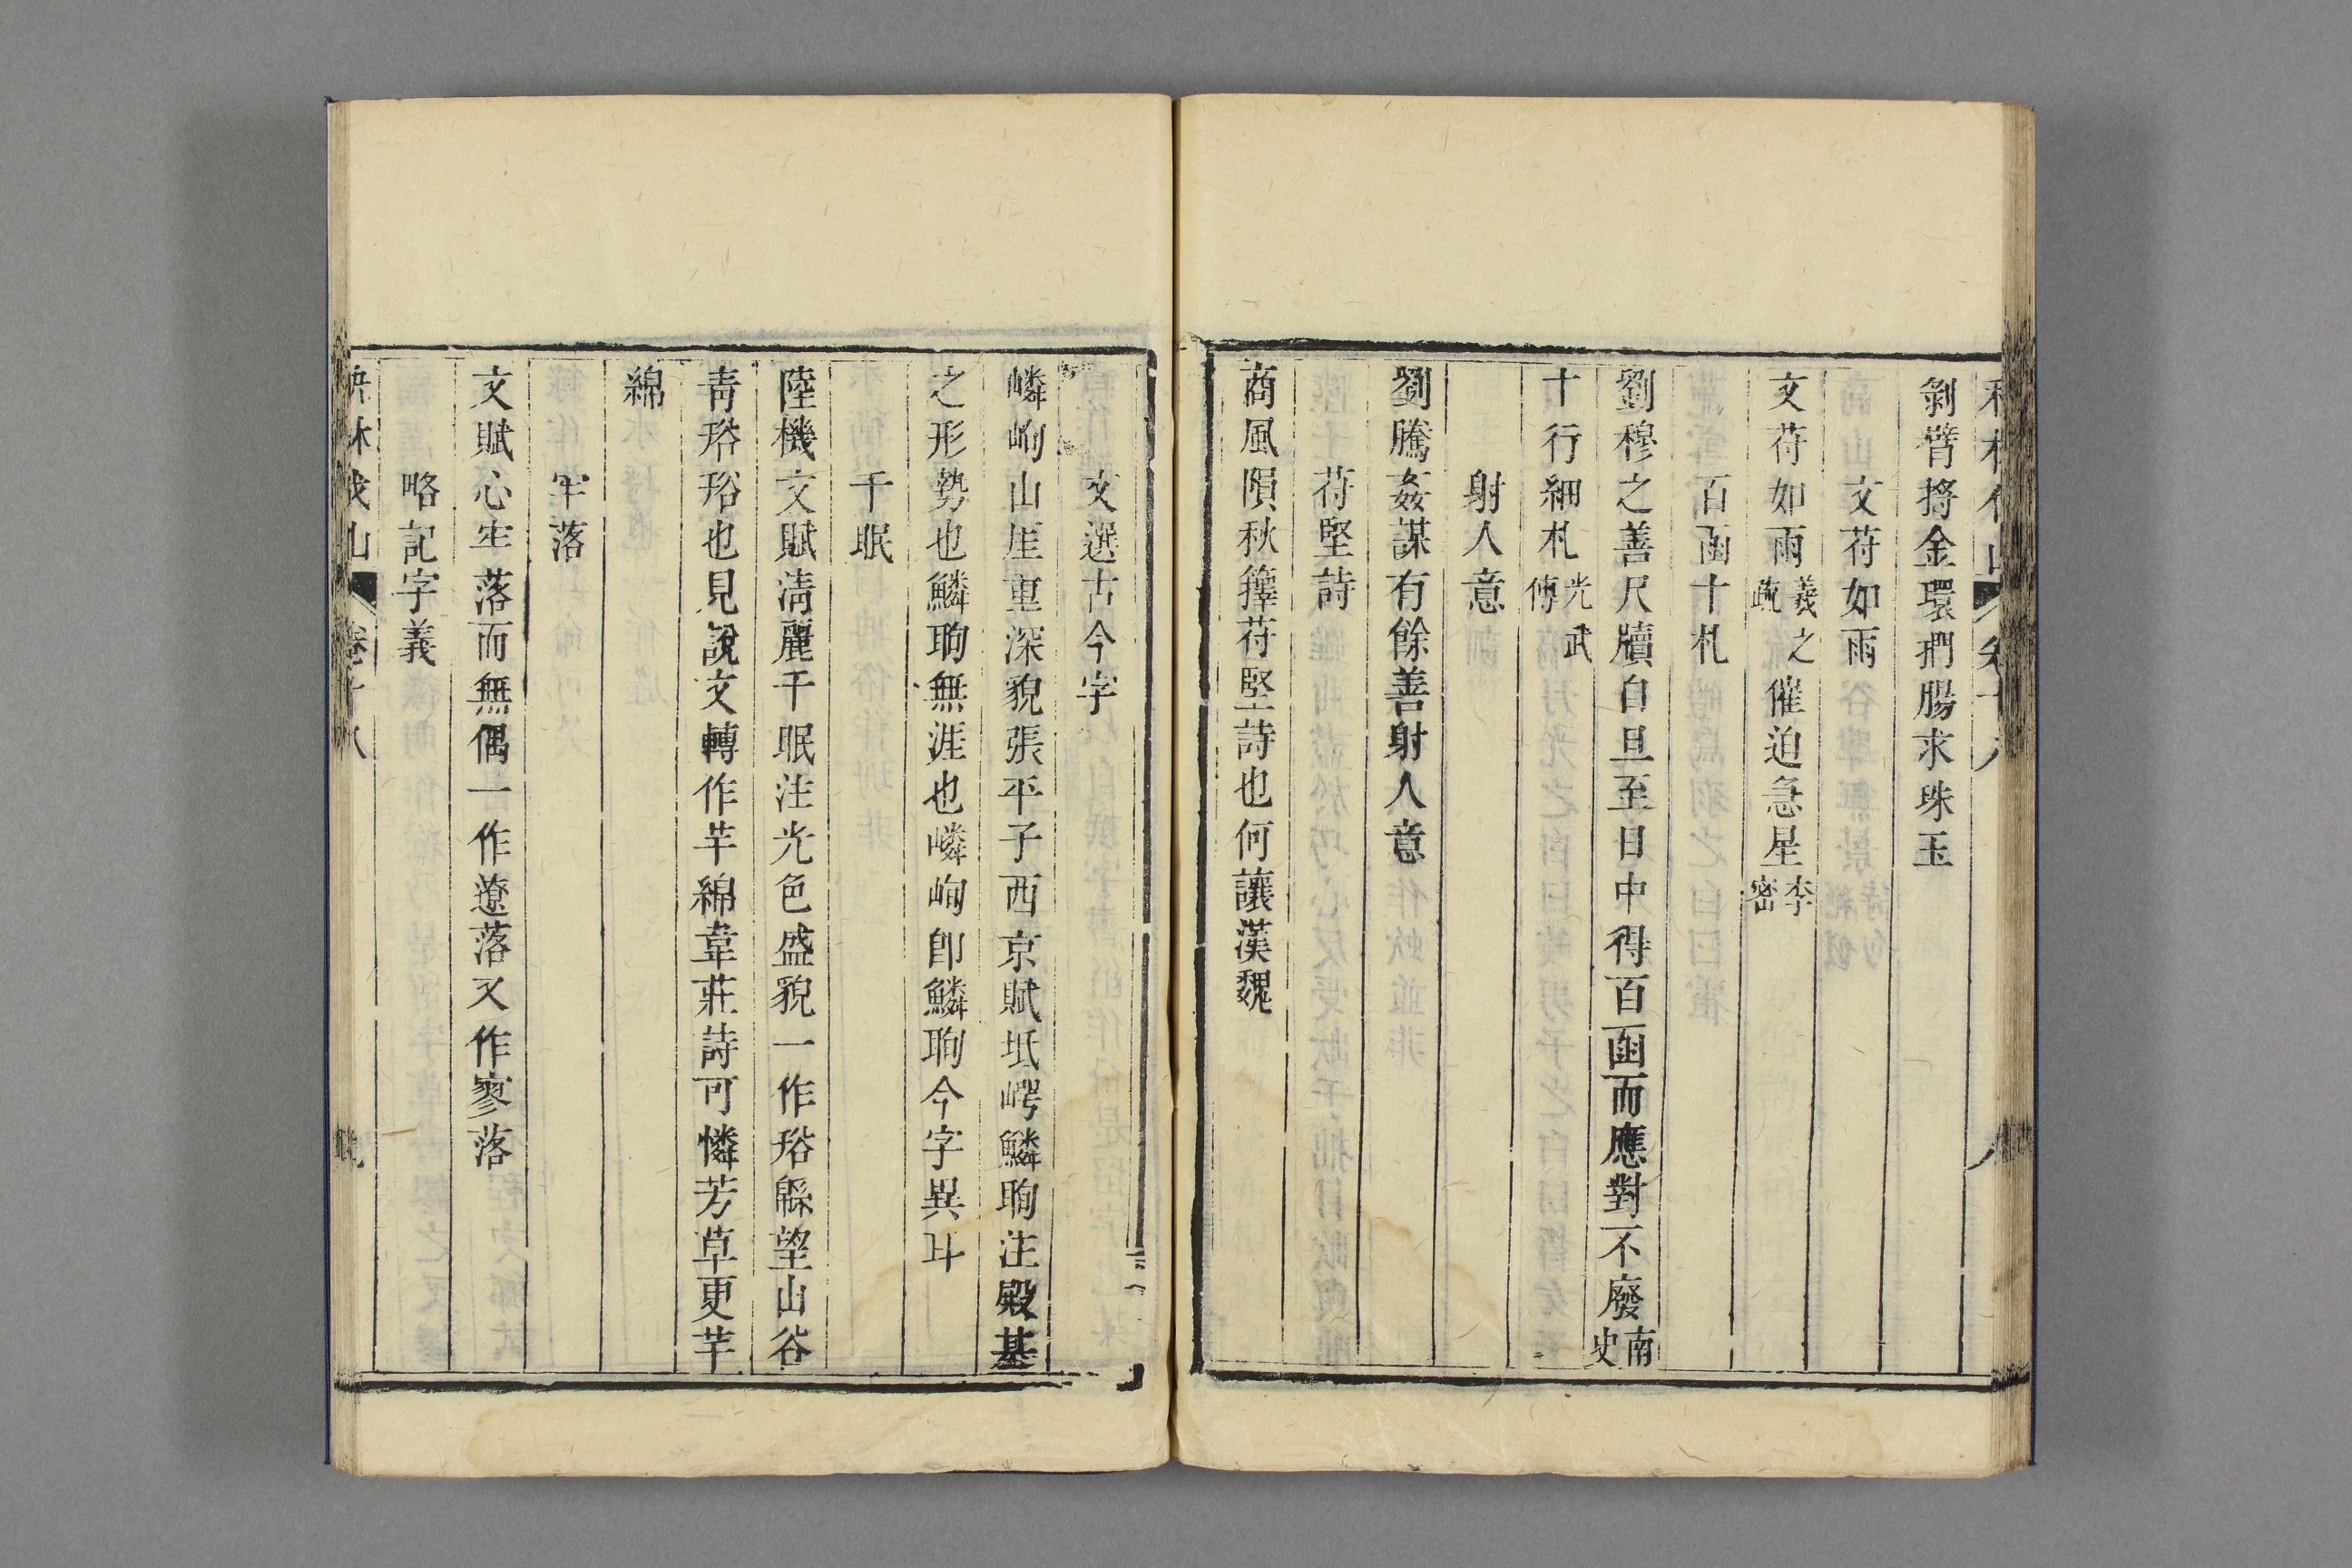 剝臂捋金環捫腸求珠玉
文苻如雨
文苻如雨義之疏催迫急星李密
百函十札
劉穆之善尺牘自旦至日中得百函而應對不廢南史
十行細札光武傳
射人意
劉騰姦謀有餘善射人意
苻堅詩
商風隕秋籜苻堅詩也何讓漢魏
文選古今字
嶙峋山崖重深貌張平子西京賦坻崿鱗眴注殿基
之形勢也鱗眴無涯也嶙峋卽鱗眴今字異耳
千眠
陸機文賦淸麗千眠注光色盛貌一作谸緜望山谷
靑谸谸也見說文轉作芊綿韋莊詩可憐芳草更芊
綿
牢落
文賦心牢落而無偶一作遼落又作寥落
略記字義
卷十八